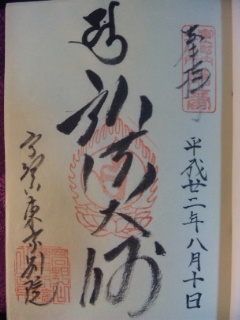 奉拝
平成廿二年八月十日
弘法大師
高野山東京別院